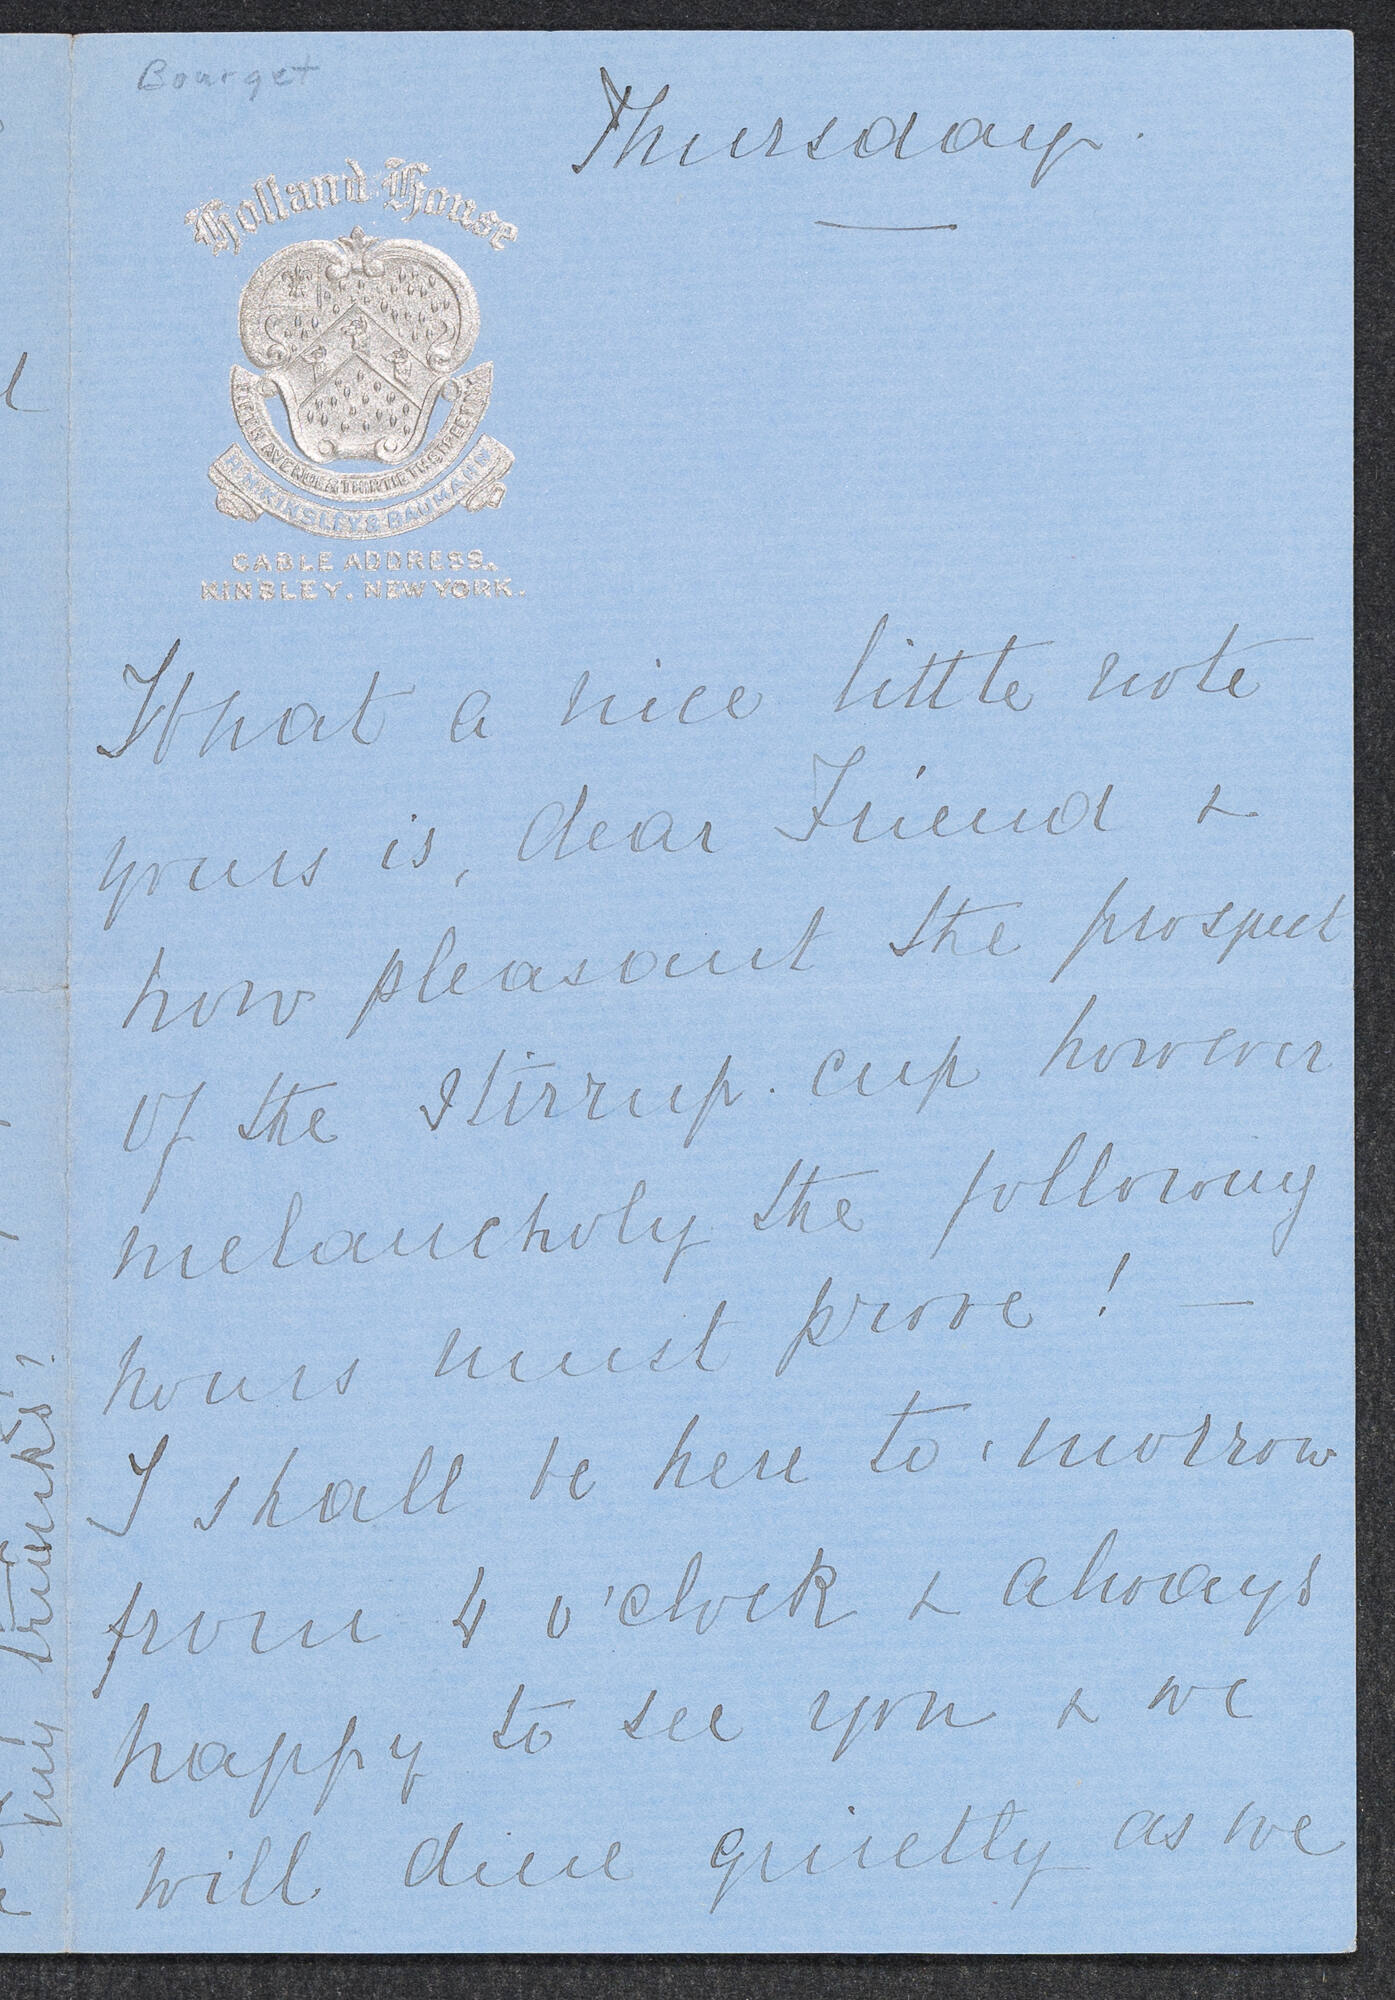 Bourget
Thursday.
Holland House
FIFTH AVENUE & THIRTIETH STREET N.Y.
H.M. KINSLEY & BAUMANN
CABLE ADDRESS,
KINSLEY, NEW YORK.
What a nice little note
yours is, dear Friend &
how pleasant the prospect
of the Stirrup. cup however
melancholy the following
hours must prove! —
I shall be here to.morrow
from 4 o'clock & always
happy to see you & we
will dine quietly as we
my trunks?